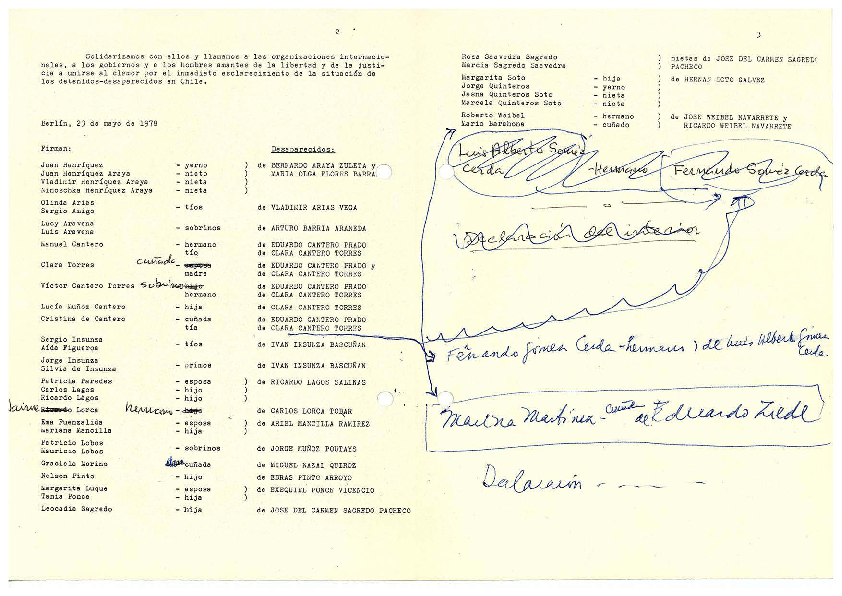 2
Solidarizamos con ellos y llamamos a las organizaciones internacio-
nales, a los gobiernos y a los hombres amantes de la libertad y de la justi-
cia a unirse al clamor por el inmediato esclarecimiento de la situación de
los detenidos-desaparecidos en Chile.
Berlín, 23 de mayo de 1978
Firman: Desaparecidos:
Juan Henríquez - yerno ) de BERNARDO ARAYA ZULETA y
Juan Henríquez Araya - nieto ) MARIA OLGA FLORES BARRA
Vladimir Henríquez Araya - nieta )
Ninoschka Henríquez Araya - nieta )
Olinda Arias
Sergio Amigo - tíos de VLADIMIR ARIAS VEGA
Lucy Aravena
Luis Aravena - sobrinos de ARTURO BARRIA ARANEDA
Manuel Cantero - hermano de EDUARDO CANTERO PRADO
tío de CLARA CANTERO TORRES
Clara Torres cuñada - esposa de EDUARDO CANTERO PRADO y
madre de CLARA CANTERO TORRES
Víctor Cantero Torres sobrino hijo de EDUARDO CANTERO PRADO
hermano de CLARA CANTERO TORRES
Lucía Muñoz Cantero - hija de CLARA CANTERO TORRES
Cristina de Cantero - cuñada de EDUARDO CANTERO PRADO
tía de CLARA CANTERO TORRES
Sergio Insunza
Aída Figueroa - tíos de IVAN INSUNZA BASCUÑAN
Jorge Insunza
Silvia de Insunza - primos de IVAN INSUNZA BASCUÑAN
Patricia Paredes - esposa ) de RICARDO LAGOS SALINAS
Carlos Lagos - hijo )
Ricardo Lagos - hijo )
Jaime Lorca hermano de CARLOS LORCA TOBAR
Ema Fuenzalida - esposa ) de ARIEL MANCILLA RAMIREZ
Mariana Mancilla - hija )
Patricio Lobos
Mauricio Lobos - sobrinos de JORGE MUÑOZ POUTAYS
Graciela Merino - cuñada de MIGUEL NAZAL QUIROZ
Nelson Pinto - hijo de EDRAS PINTO ARROYO
Margarita Luque - esposa ) de EXEQUIEL PONCE VICENCIO
Tania Ponce - hija )
Leocadia Sagredo - hija de JOSE DEL CARMEN SAGREDO PACHECO
3
Rosa Saavedra Sagredo ) nietas de JOSE DEL CARMEN SAGREDO
Marcia Sagredo Saavedra ) PACHECO
Margarita Soto - hija ) de HERNAN SOTO GALVEZ
Jorge Quinteros - yerno )
Jasna Quinteros Soto - nieta )
Marcela Quinteros Soto - nieta )
Roberto Weibel - hermano ) de JOSE WEIBEL NAVARRETE y
Mario Barahona - cuñado ) RICARDO WEIBEL NAVARRETE
Luis Alberto
Cerda -Hermano Fernando Cerda
Declaración del interior
Fernando Gómez Cerda - hermano ) de Luis Alberto Gómez
Cerda.
Marina Martínez - cuñada de Eduardo
Declaración - - - - -